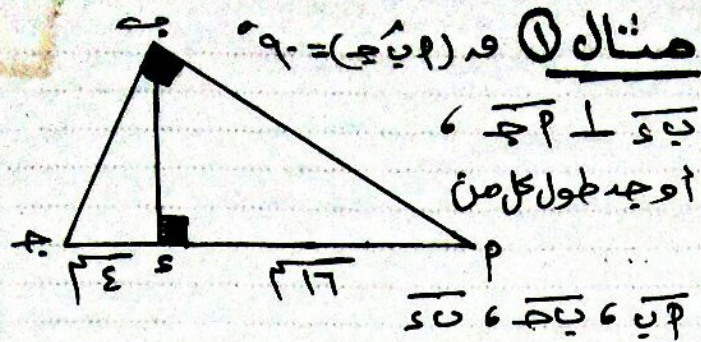 مثال ① ق (أ ب̂ ج) = ٩٠°
ب د ⊥ أ ج ،
أوجد طول كل من
أ ب ، ب ج ، ب د
ب
ج
د
أ
٤ سم
١٦ سم